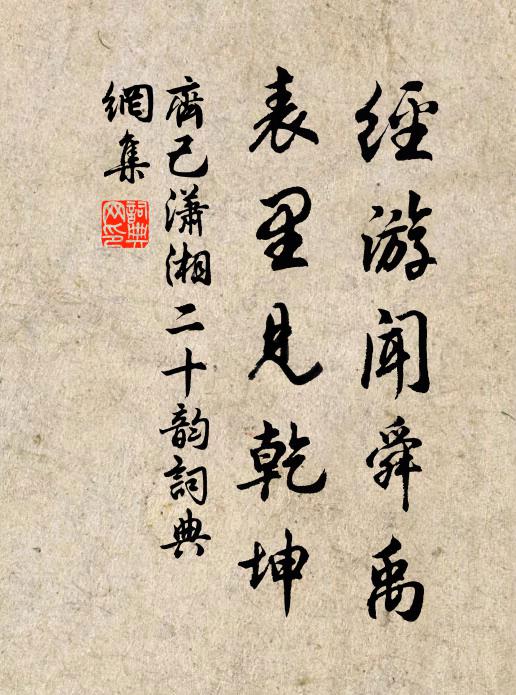 經游闻舜禹
表里見乾坤
齊己瀟湘二十韵詞典
網集
詞典
网印